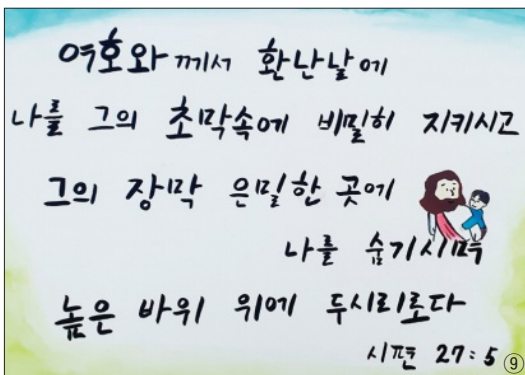 여호와께서 환난날에
나를 그의 초막속에 비밀히 지키시고
그의 장막 은밀한 곳에
나를 숨기시며
높은 바위 위에 두시리로다
시편 27:5
⑨